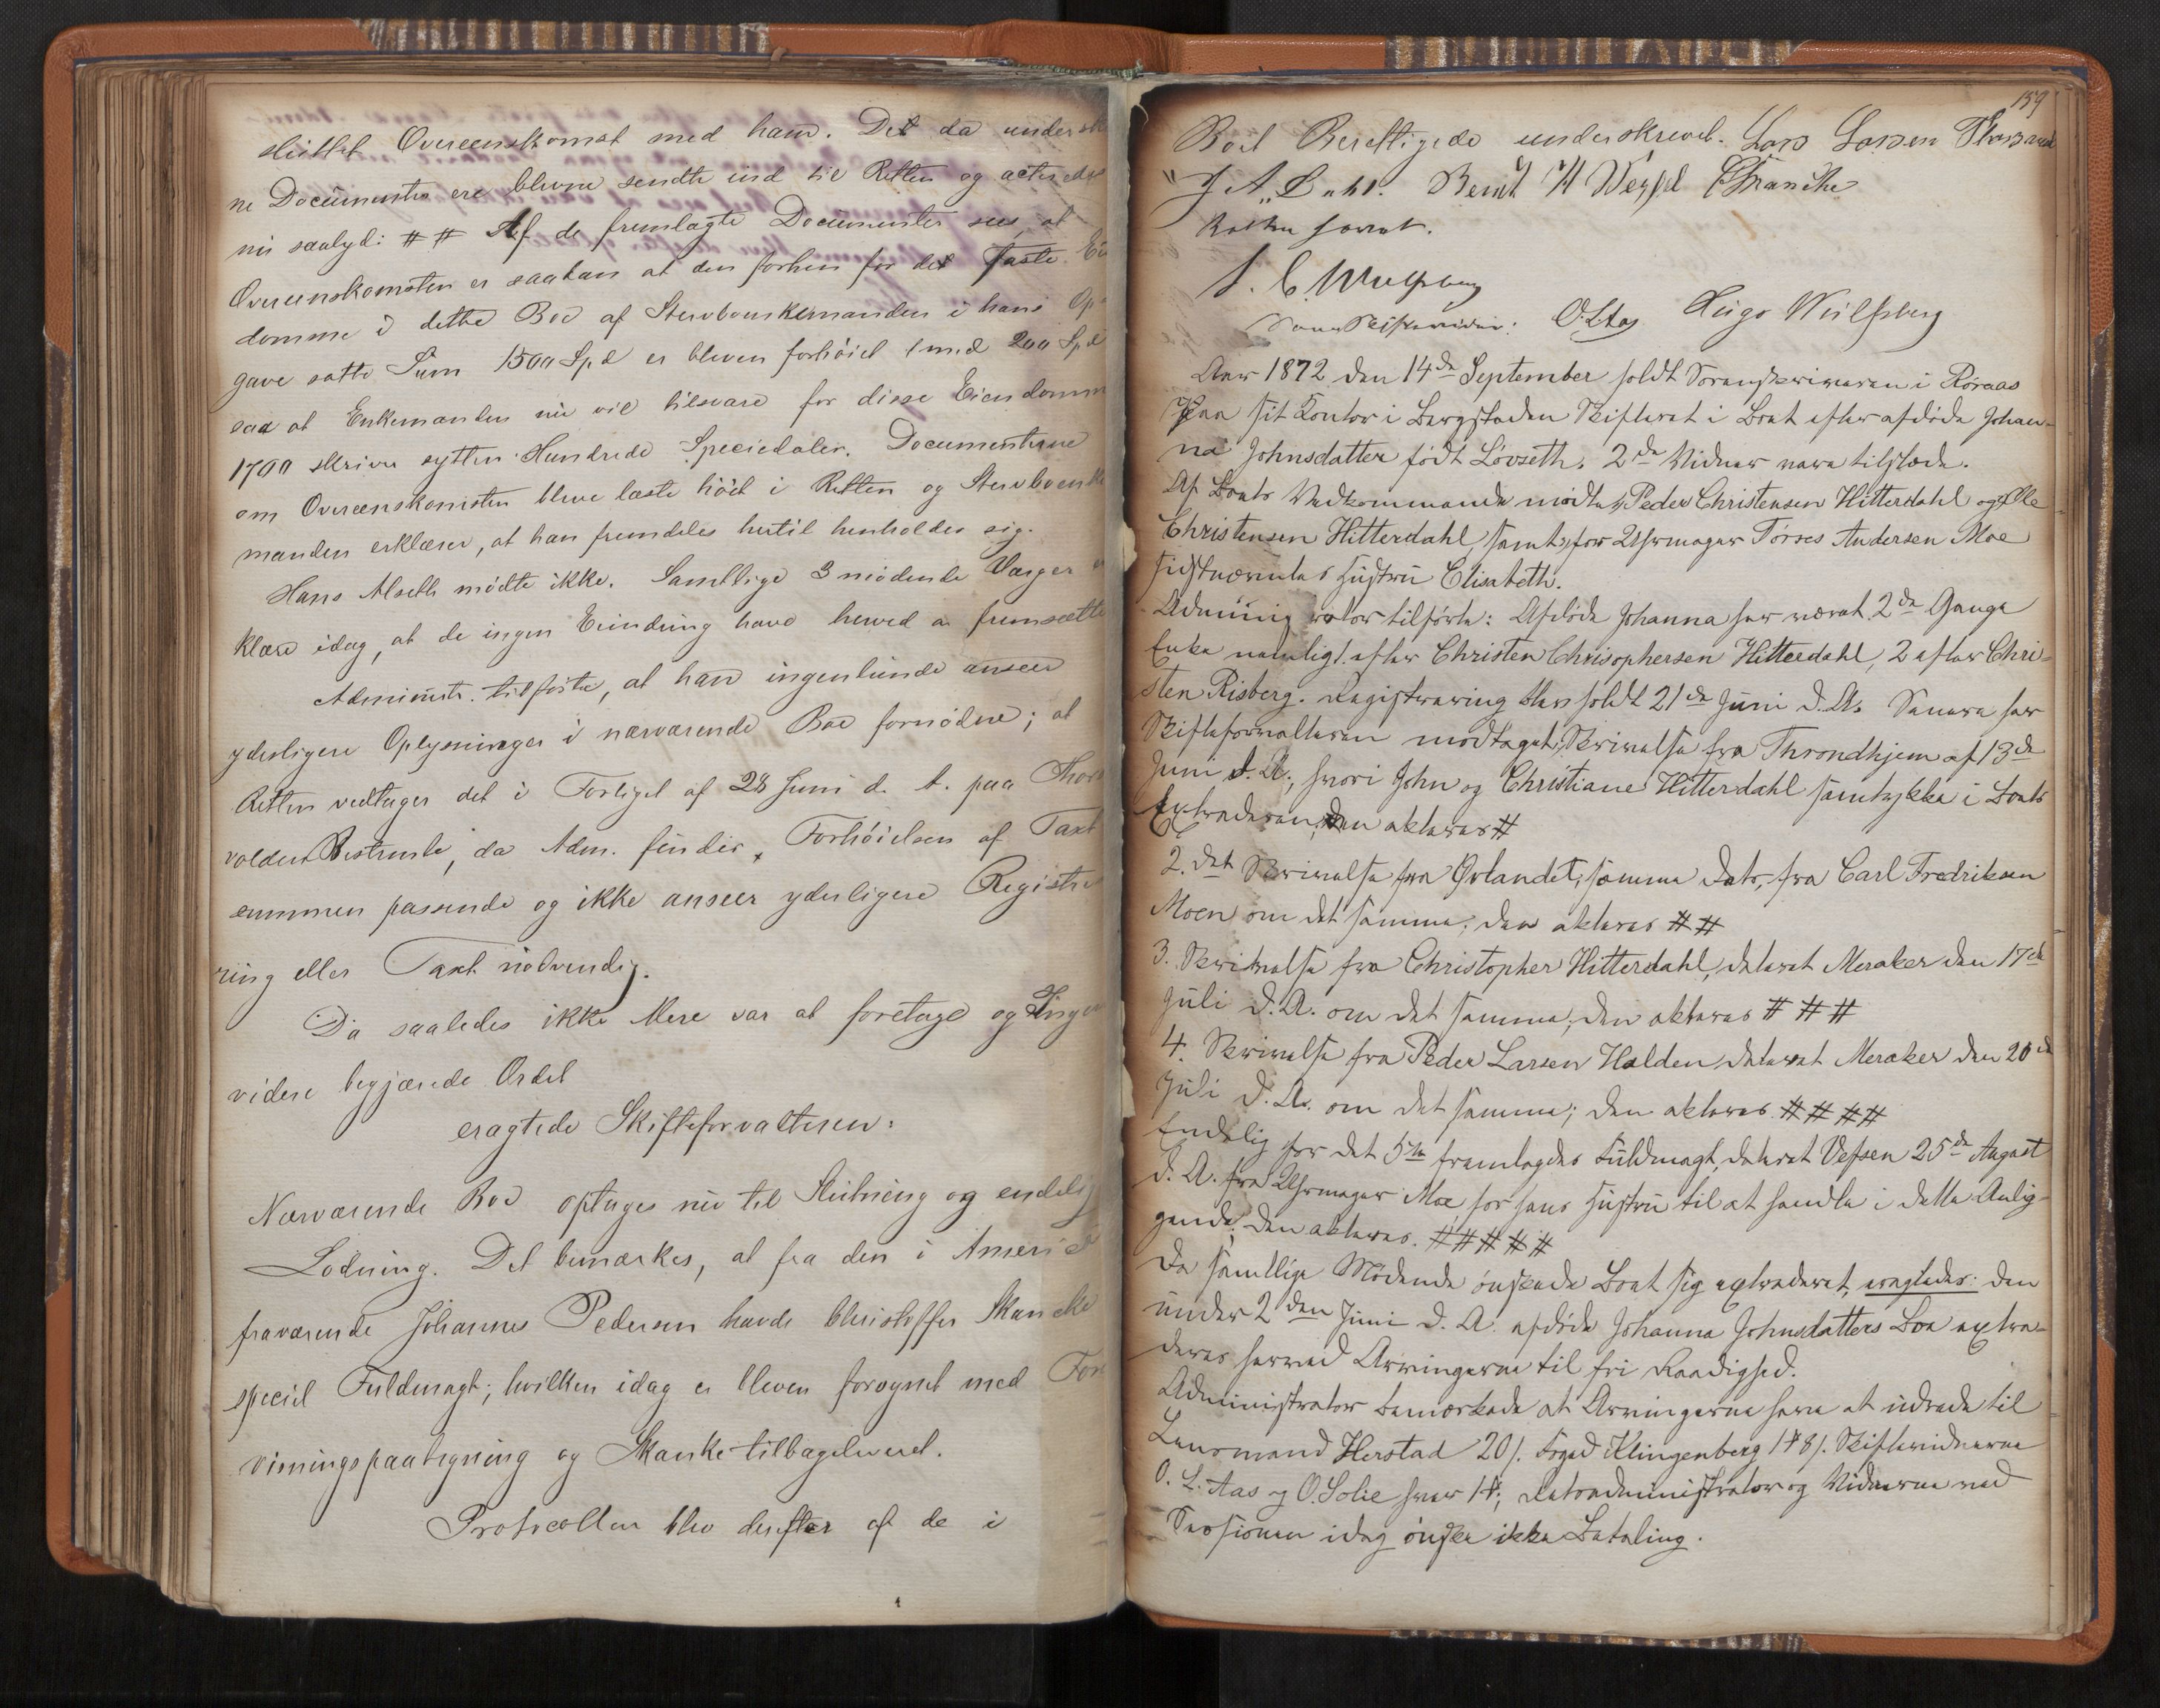 sluttet Overeenskomst med ham. Det da undersk
ne Documenter ere blevne sendte ind til Retten og acteredes
nu saalyd: ## Af de fremlagte Documenter sees, at
Overeenskomsten er saadan at den forhen for det faste Ei
domme i dette Boe af Stervboenkemanden i hans Op
gave satte Sum 1500 Spd er bleven forhøiet med 200 Spd
saa at Enkemanden nu vil tilsvare for disse Eiendomm
1700 skriver sytten Hundrede Speciedaler. Documenterne
om Overeenskomsten bleve læste höit i Retten og Stervboenke
manden erklærer, at han fremdeles hertil henholder sig.
Hans Alseth mödte ikke. Samtlige 3 mödende Værger
klære idag, at de ingen Erindring have herved at fremsætte
Administr. tilförte, at han ingenlunde anseer
yderligere Oplysninger i nærværende Boe fornödne; at
Retten vedtager det i Forliget af 28 Juni d. A. paa
voldert Bestemte, da Adm. finder Forhöielsen af Taxt
summen passende og ikke anseer yderligere Registre
ring eller Taxt nödvendig.
Da saaledes ikke Mere var at foretage og Ingen
videre begjærede Ordet
eragtede Skifteforvalteren:
Nærværende Boe optages nu til Slutning og endelig
Lodning. Det bemærkes, at fra den i America
fraværende Johannes Pedersen havde Christoffer Skancke
speciel Fuldmagt; hvilken idag er bleven forsynet med For
visningspaategning og Skanke tilbageleveret.
Protocollen blev derefter af de i
159
Boet Berettigede underskrevet. Lars Larsen
J A Dahl. Bernt H Wessel Skancke
Retten hævet.
S. C. Wulfsberg
Som Skiftevidner: O L Aas Hugo Wülfsberg
Aar 1872 den 14de September holdt Sorenskriveren i Röraas
paa sit Kontor i Bergstaden Skifteret i Boet efter afdöde Johan-
na Johnsdatter födt Lövseth. 2de Vidner vare tilstede.
Af Boets Vedkommende mödte Peder Christensen Hitterdahl og Ole
Christensen Hitterdahl, samt for Uhrmager Törres Andersen Moe
sidstnævntes Hustru Elisabeth.
Administrator tilförte: Afdöde Johanna har været 2de Gange
Enke nemlig 1. efter Christen Chrisophersen Hitterdahl, 2 efter Chri-
sten Risberg. Registrering blev holdt 21de Juni d. A. Senere har
Skifteforvalteren modtaget, Skrivelse fra Throndhjem af 13de
Juni d. A., hvori John og Christiane Hitterdahl samtykke i Boets
Extraderen, den akteres #
2. det Skrivelse fra Örlandet, samme Dato, fra Carl Fredriksen
Moen om det samme; den akteres ##
3. Skrivelse fra Christopher Hitterdahl, dateret Meraker den 17de
Juli d. A. om det samme; den akteres ###
4. Skrivelse fra Peder Larsen Halden dateret Meraker den 20de
Juli d. A. om det samme; den akteres ####
Endelig for det 5te fremlagdes Fuldmagt, dateret Vefsen 25de August
d. A. fra Uhrmager Moe for hans Hustru til at handle i dette Anlig-
gende; den akteres. #####
Da samtlige Mödende önskede Boet sig extraderet, eragtedes: den
under 2den Juni d. A. afdöde Johanna Johnsdatters Boe extra-
deres herved Arvingerne til fri Raadighed.
Administrator bemærkede at Arvingerne have at udrede til
Lensmand Herstad 20/. Foged Klingenberg 1# 8/. Skiftevidnerne
O. L. Aas og O. Solie hver 1#; Retsadministrator og Vidnerne ved
Sessionen idag önske ikke Betaling.